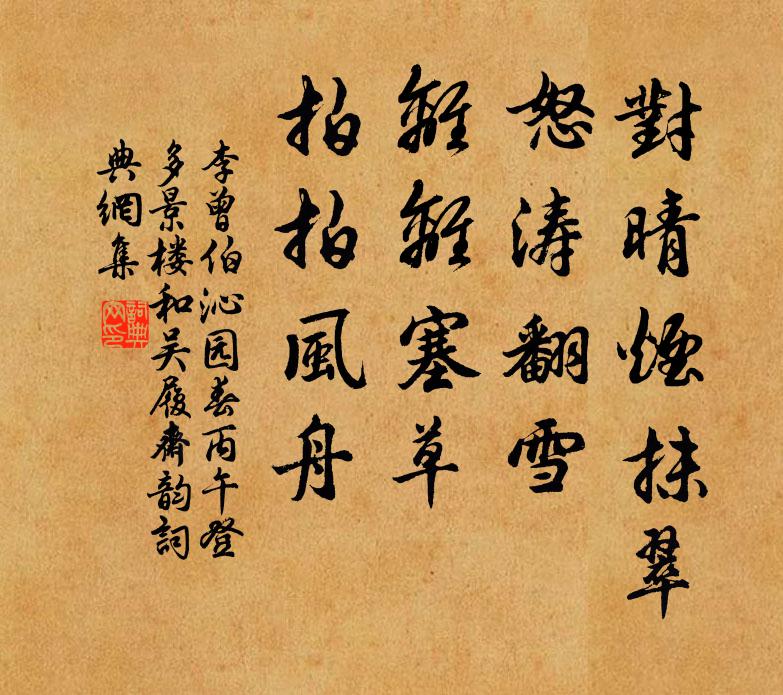 對晴煙抹翠
怒涛翻雪
離離塞草
拍拍風舟
李曾伯沁园春丙午登
多景楼和吴履齋韵詞
典網集
詞典网印